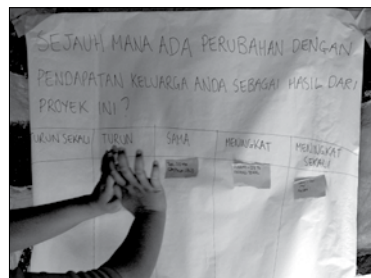 SEJAUH MANA ADA PERUBAHAN DENGAN
PENDAPATAN KELUARGA ANDA SEBAGAI HASIL DARI
PROYEK INI ?
TURUN SEKALI TURUN SAMA MENINGKAT MENINGKAT SEKALI